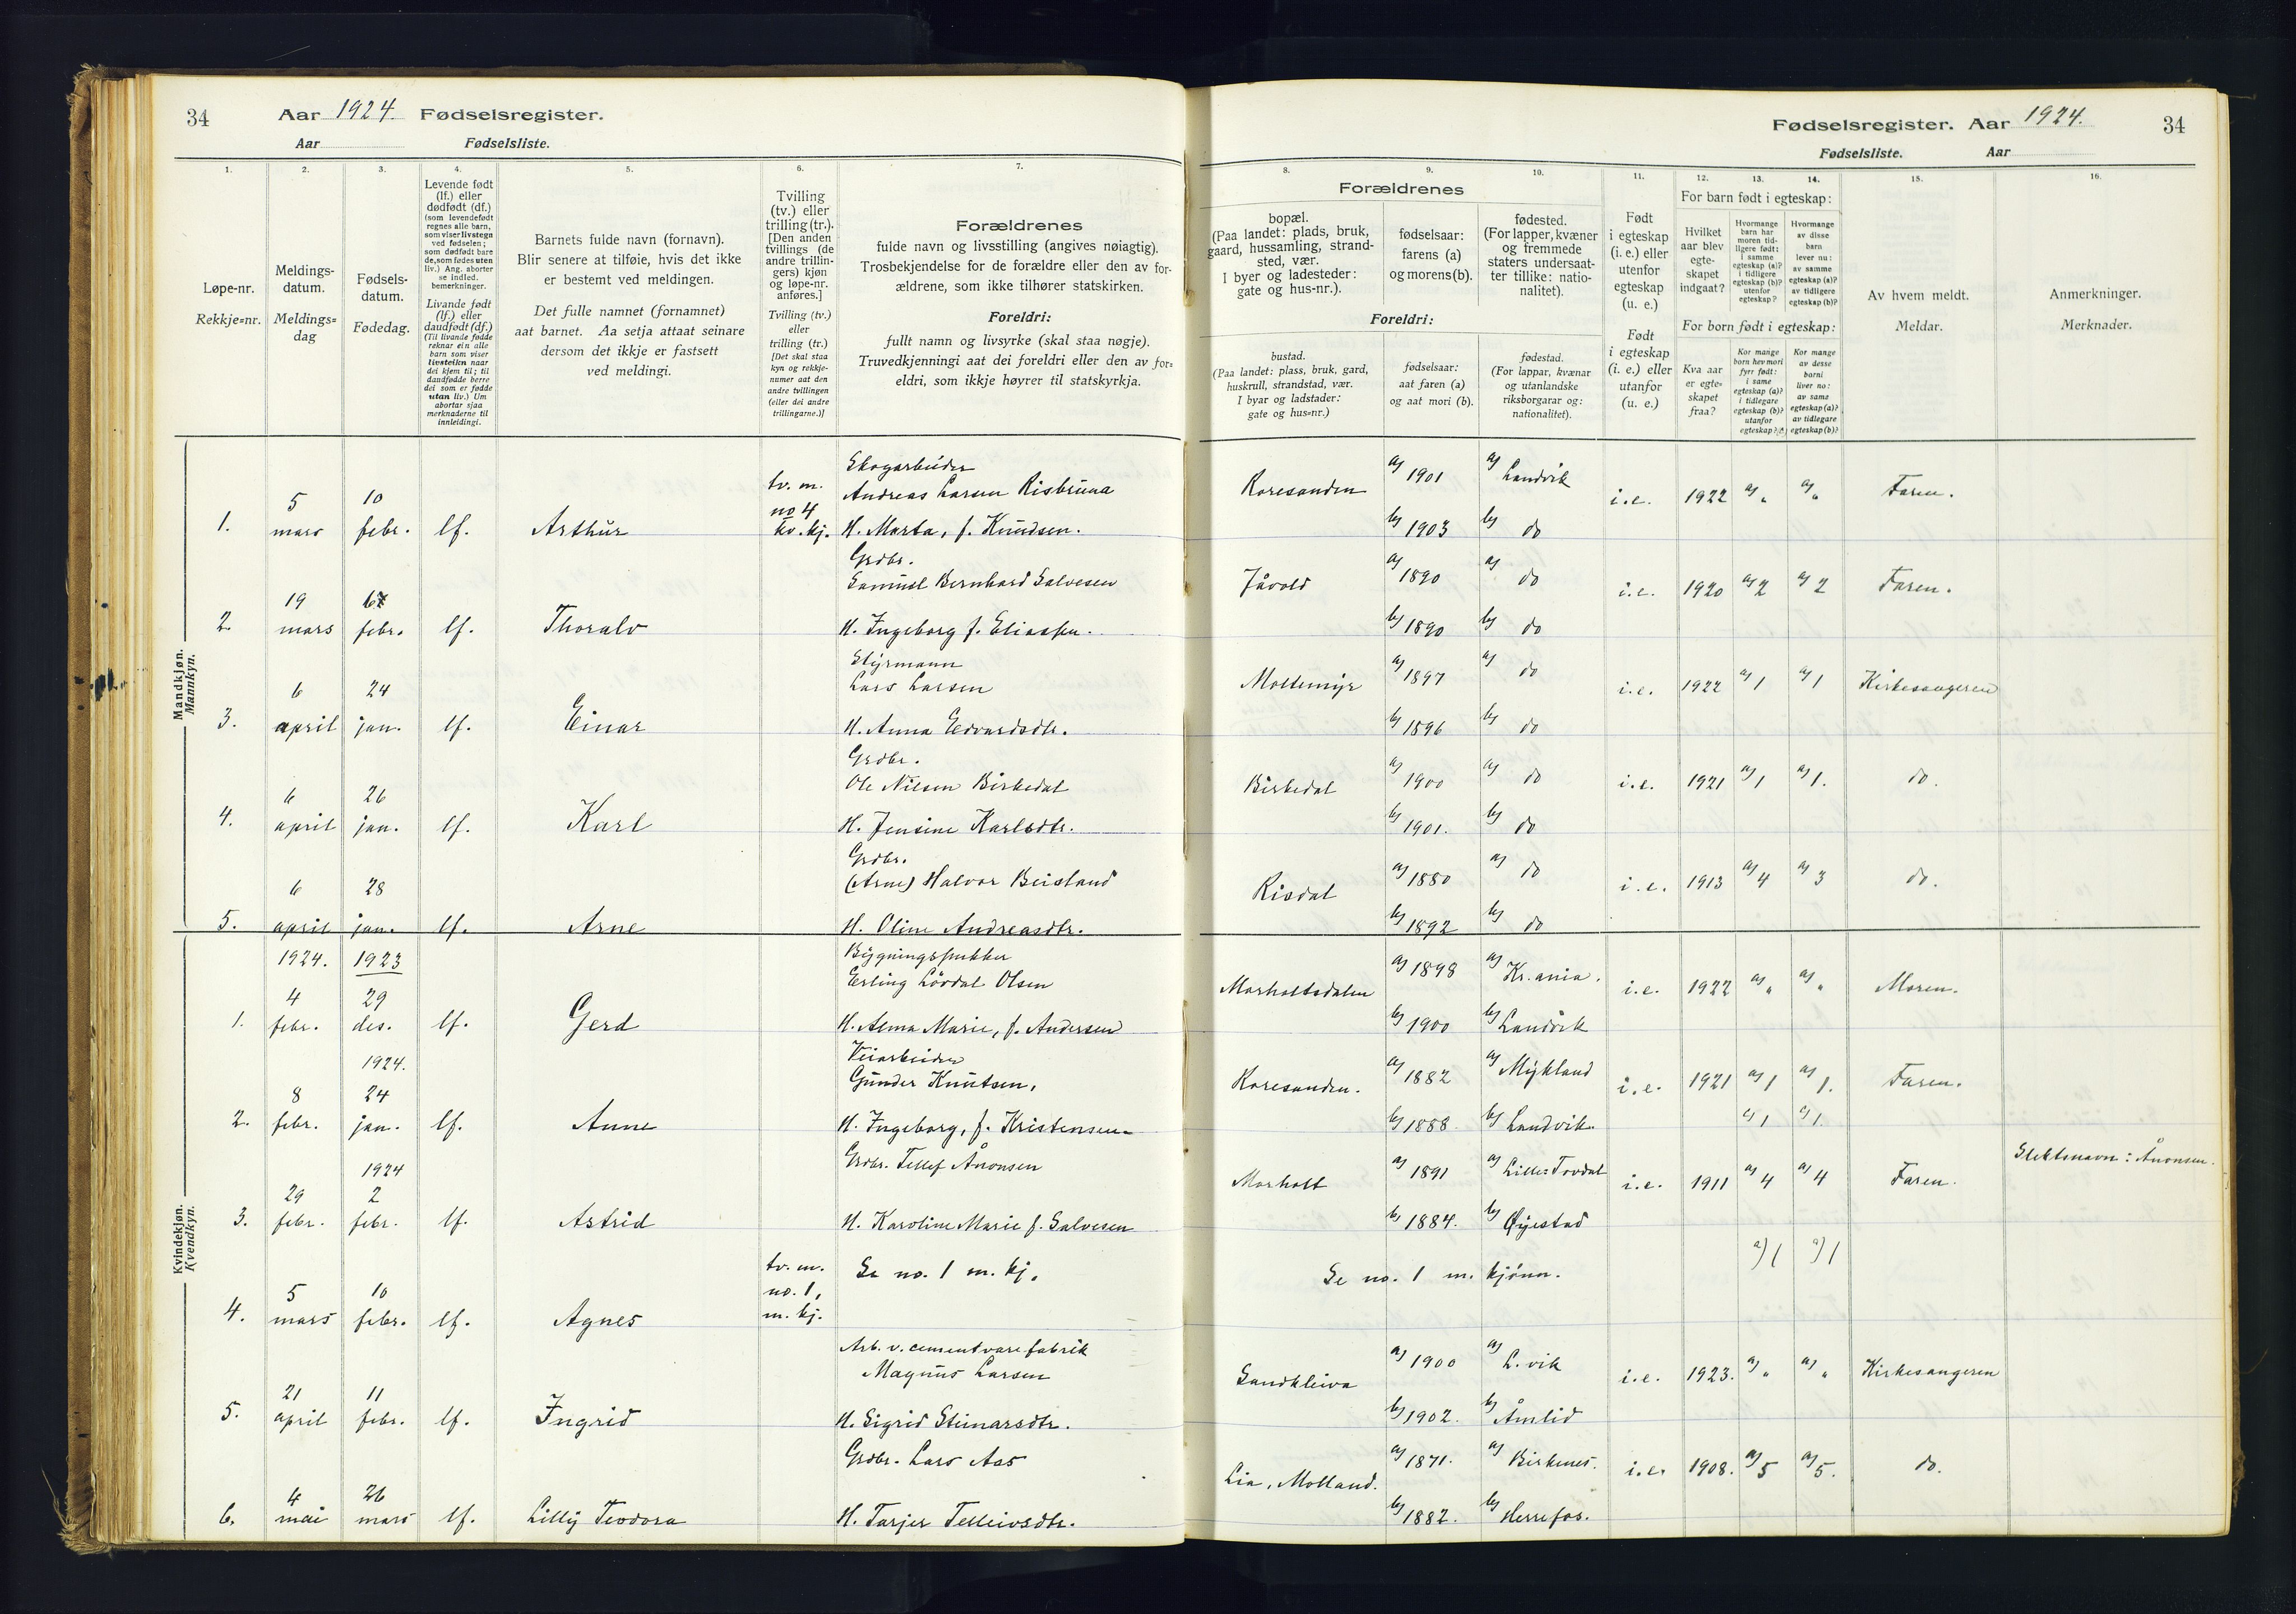 34
Aar 1924. Fødselsregister.
Aar Fødselsliste.
Fødselsregister. Aar 1924.
34
Fødselsliste. Aar
1.
2.
3.
4.
5.
6.
7.
8.
9.
10.
11.
12.
13.
14.
15.
16.
Løpe-nr.
Rekkje=nr.
Meldings-
datum.
Meldings=
dag
Fødsels-
datum.
Fødedag.
Levende født
(lf.) eller
dødfødt (df.)
(som levendefødt
regnes alle barn,
som viser livstegn
ved fødselen;
som dødfødt bare
de, som fødes uten
liv.) Ang. aborter
se indled.
bemerkninger.
Livande født
(lf.) eller
daudfødt (df.)
(Til livande fødde
reknar ein alle
barn som viser
livsteikn naar
dei kjem til; til
daudfødde berre
dei som er fødde
utan liv.) Um
abortar sjaa
merknaderne til
innleidingi.
Barnets fulde navn (fornavn).
Blir senere at tilføie, hvis det ikke
er bestemt ved meldingen.
Det fulle namnet (fornamnet)
aat barnet. Aa setja attaat seinare
dersom det ikkje er fastsett
ved meldingi.
Tvilling
(tv.) eller
trilling (tr.).
[Den anden
tvillings (de
andre trillin-
gers) kjøn
og løpe-nr.
anføres.]
Tvilling (tv.)
eller
trilling (tr.)
[Det skal staa
kyn og rekkje-
numer aat den
andre tvillingen
(eller dei andre
trillingarne.)]
Forældrenes
fulde navn og livsstilling (angives nøiagtig).
Trosbekjendelse for de forældre eller den av for-
ældrene, som ikke tilhører statskirken.
Foreldri:
fullt namn og livsyrke (skal staa nøgje).
Truvedkjenningi aat dei foreldri eller den av for=
eldri, som ikkje høyrer til statskyrkja.
Forældrenes
bopæl.
(Paa landet: plads, bruk,
gaard, hussamling, strand-
sted, vær.
I byer og ladesteder:
gate og hus-nr.).
fødselsaar:
farens (a)
og morens (b).
fødested.
(For lapper, kvæner
og fremmede
staters undersaat-
ter tillike: natio-
nalitet).
Foreldri:
bustad.
(Paa landet: plass, bruk, gard,
huskrull, strandstad, vær.
I byar og ladstader:
gate og hus=nr.)
fødselsaar:
aat faren (a)
og aat mori (b).
fødestad.
(For lappar, kvænar
og utanlandske
riksborgarar og:
nationalitet).
Født
i egteskap
(i. e.) eller
utenfor
egteskap
(u. e.)
Født
i egteskap
(i. e.) eller
utanfor
(u. e.)
For barn født i egteskap:
Hvilket
aar blev
egte-
skapet
indgaat?
Hvormange
barn har
moren tid-
ligere født:
i samme
egteskap (a)?
i tidligere
egteskap (b)?
utenfor
egteskap?
Hvormange
av disse
barn
lever nu:
av samme
egteskap (a)?
av tidligere
egteskap (b)?
For born født i egteskap:
Kva aar
er egte=
skapet
fraa?
Kor mange
born hev mori
fyrr født:
i same
egteskap (a)?
i tidlegare
egteskap (b)?
utanfor
egteskap?
Kor mange
av desse
borni
liver no:
av same
egteskap (a)?
av tidlegare
egteskap (b)?
Av hvem meldt.
Meldar.
Anmerkninger.
Merknader.
Mandkjøn.
Mannkyn.
1. 5 mars 10 febr. lf. Arthur tv. m. no 4 kv. kj.
Skogarbeider
Andreas Larsen Risbruna
H. Marta, f. Knudsen.
Roresanden a) 1901 a) Landvik i.e. 1922 a) " a) " Faren.
b) 1903 b) do
2. 19 mars febr. lf. Thoralv
Grdbr.
Samuel Bernhard Salvesen
H. Ingeborg f. Eliassen.
Jåvold a) 1890 a) do i.e. 1920 a) 2 a) 2 Faren.
b) 1890 b) do
3. 6 april 24 jan. lf. Einar
Styrmann
Lars Larsen
H. Anna Edvardsdtr.
Moltemyr a) 1897 a) do i.e. 1922 a) 1 a) 1 Kirkesangeren
b) 1896 b) do
4. 6 april 26 jan. lf. Karl
Grdbr.
Ole Nilsen Birkedal
H. Jensine Karlsdtr.
Birkedal a) 1900 a) do i.e. 1921 a) 1 a) 1. do.
b) 1901. b) do
5. 6 april 28 jan. lf. Arne
Grdbr.
(Arne) Halvor Beisland
H. Oline Andreasdtr.
Risdal a) 1880 a) do i.e. 1913 a) 4 a) 3 do.
b) 1892 b) do
Kvindekjøn.
Kvendkyn.
1924. 1923
1. 4 febr. 29 des. lf. Gerd
Bygningssnekker
Erling Lövdal Olsen
H. Alma Marie, f. Andersen
Morholtsdalen a) 1898 a) Kr.ania. i.e. 1922 a) " a) " Moren.
b) 1900 b) Landvik
1924.
2. 8 febr. 24 jan. lf. Anne
Veiarbeider
Gunder Knutsen,
H. Ingeborg, f. Kristensen.
Roresanden. a) 1882 a) Mykland i.e. 1921 a) 1 a) 1. Faren.
b) 1888 b) Landvik. c) 1 c) 1.
1924
3. 29 febr. 2 febr. lf. Astrid
Grdbr. Tellef Ånonsen
H. Karoline Marie f. Salvesen
Morholt a) 1891 a) Lille-Tovdal i.e. 1911 a) 4 a) 4 Faren. Slektsnavn: Ånonsen.
b) 1884. b) Øyestad
4. 5 mars 10 febr. lf. Agnes tv. m. no. 1, m. kj. Se no. 1 m. kj.
Se no. 1 m. kjönn. a) 1 a) 1
5. 21 april 11 febr. lf. Ingrid
Arb. v. cementvarefabrik
Magnus Larsen
H. Sigrid Steinarsdtr.
Sandkleiva a) 1900 a) L.vik i.e. 1923. a) " a) " Kirkesangeren
b) 1902. b) Åmlid
6. 4 mai 26 mars lf. Lilly Teodora
Grdbr. Lars Aas
H. Tarjer Telleivsdtr.
Lia, Molland. a) 1871. a) Birkenes. i.e. 1908. a) 5 a) 5. do.
b) 1882. b) Herrefos.